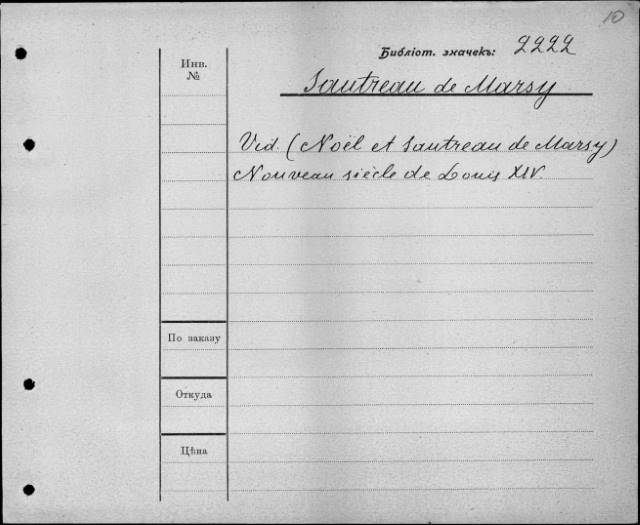 10
Библіот. значекъ: 2222
Инв.
№
Sautreau de Marsy
Vid. (Noël et Sautreau de Marsy)
Nouveau siècle de Louis XIV.
По заказу
Откуда
Цѣна